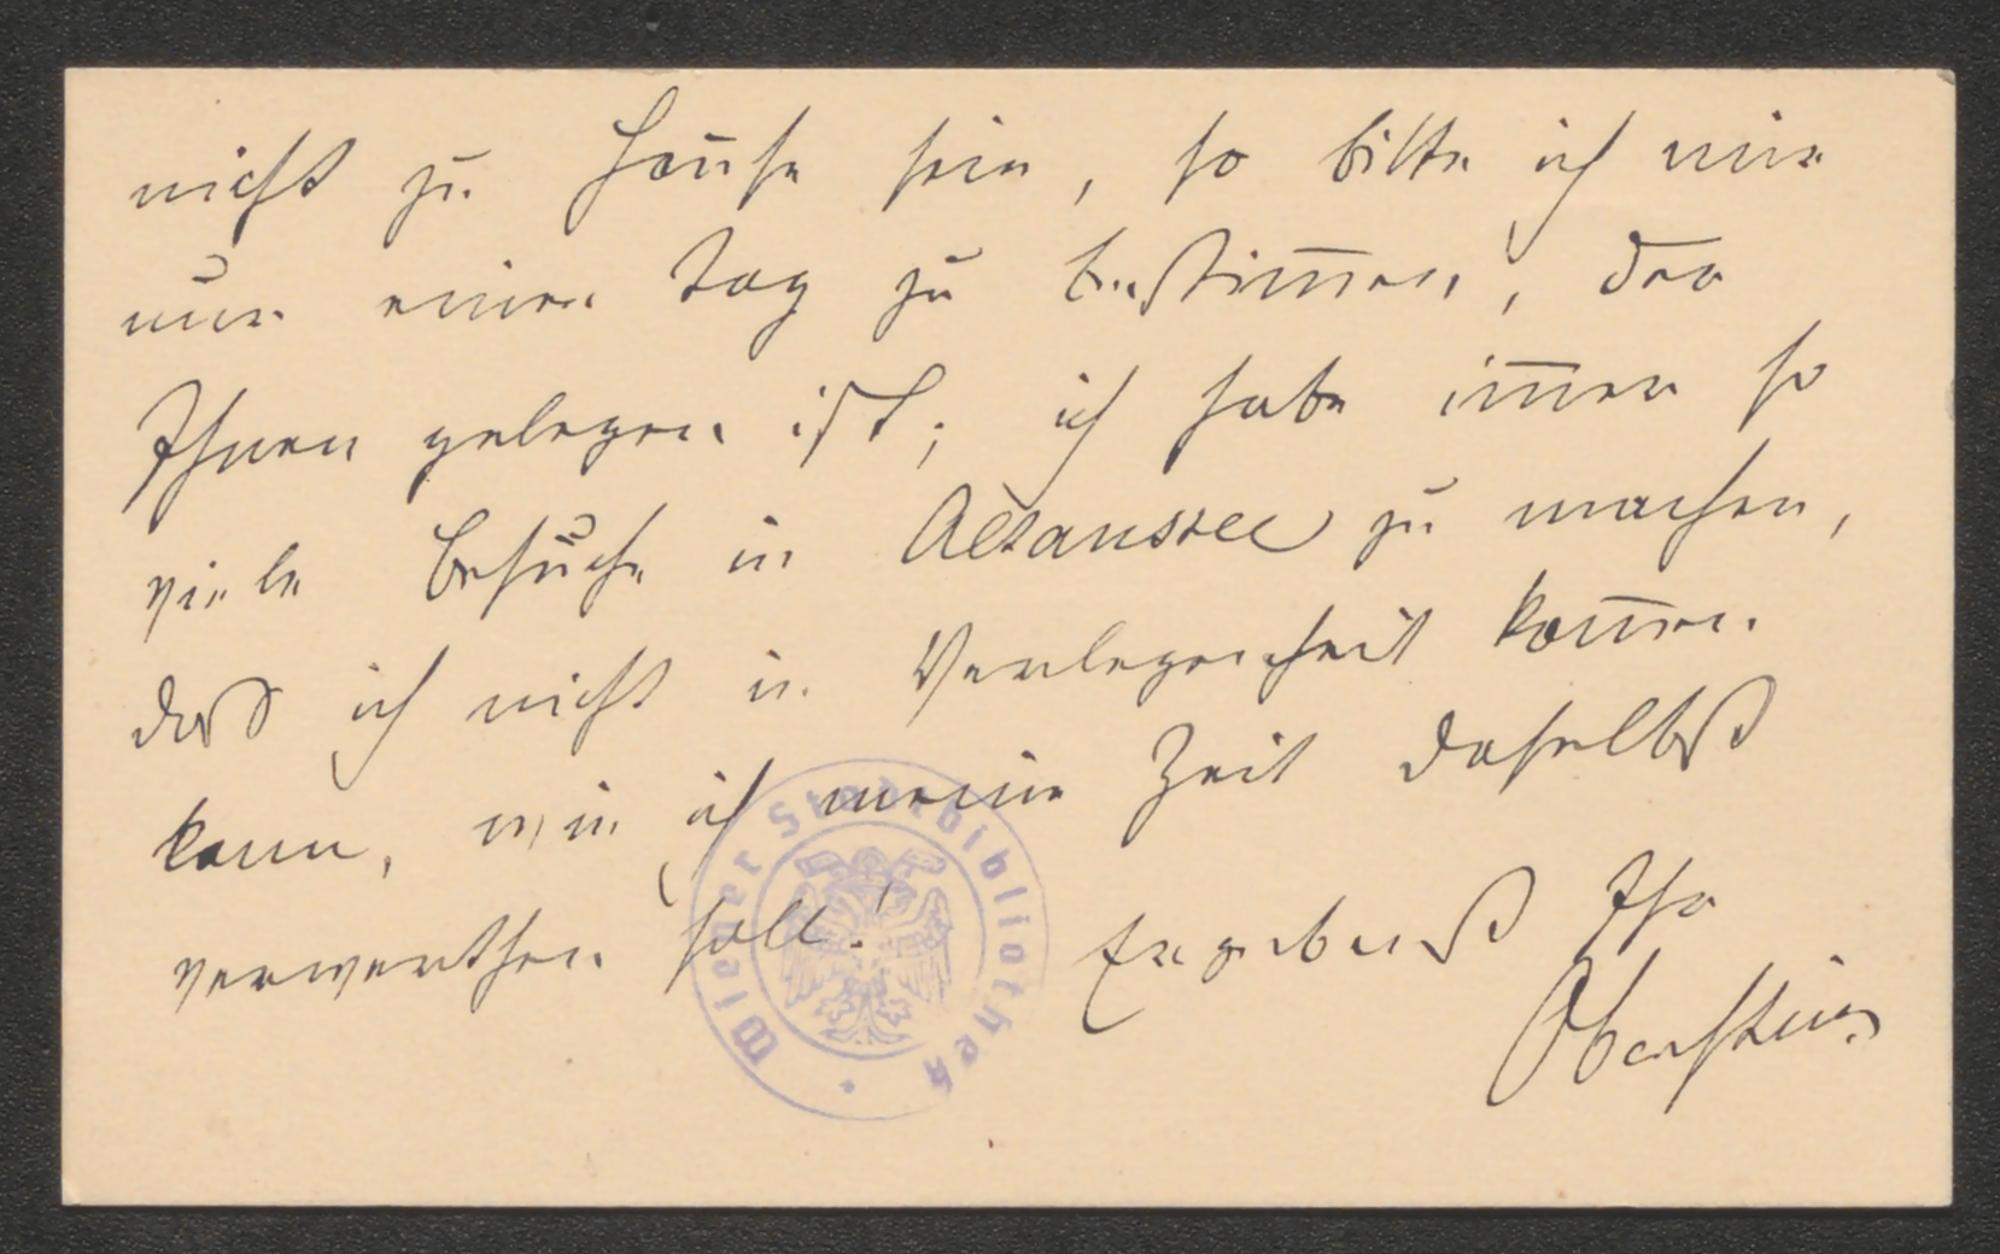 nicht zu Hause sein, so bitte ich mir
nur einen Tag zu bestim̅en, der
Ihnen gelegen ist; ich habe im̅er so
viele Besuche in Altaussee zu machen,
daß ich nicht in Verlegenheit kom̅en
kann, wie ich meine Zeit daselbst
verwerthen soll!
Ergebenst Ihr
Oberstein
Wiener Stadtbibliothek